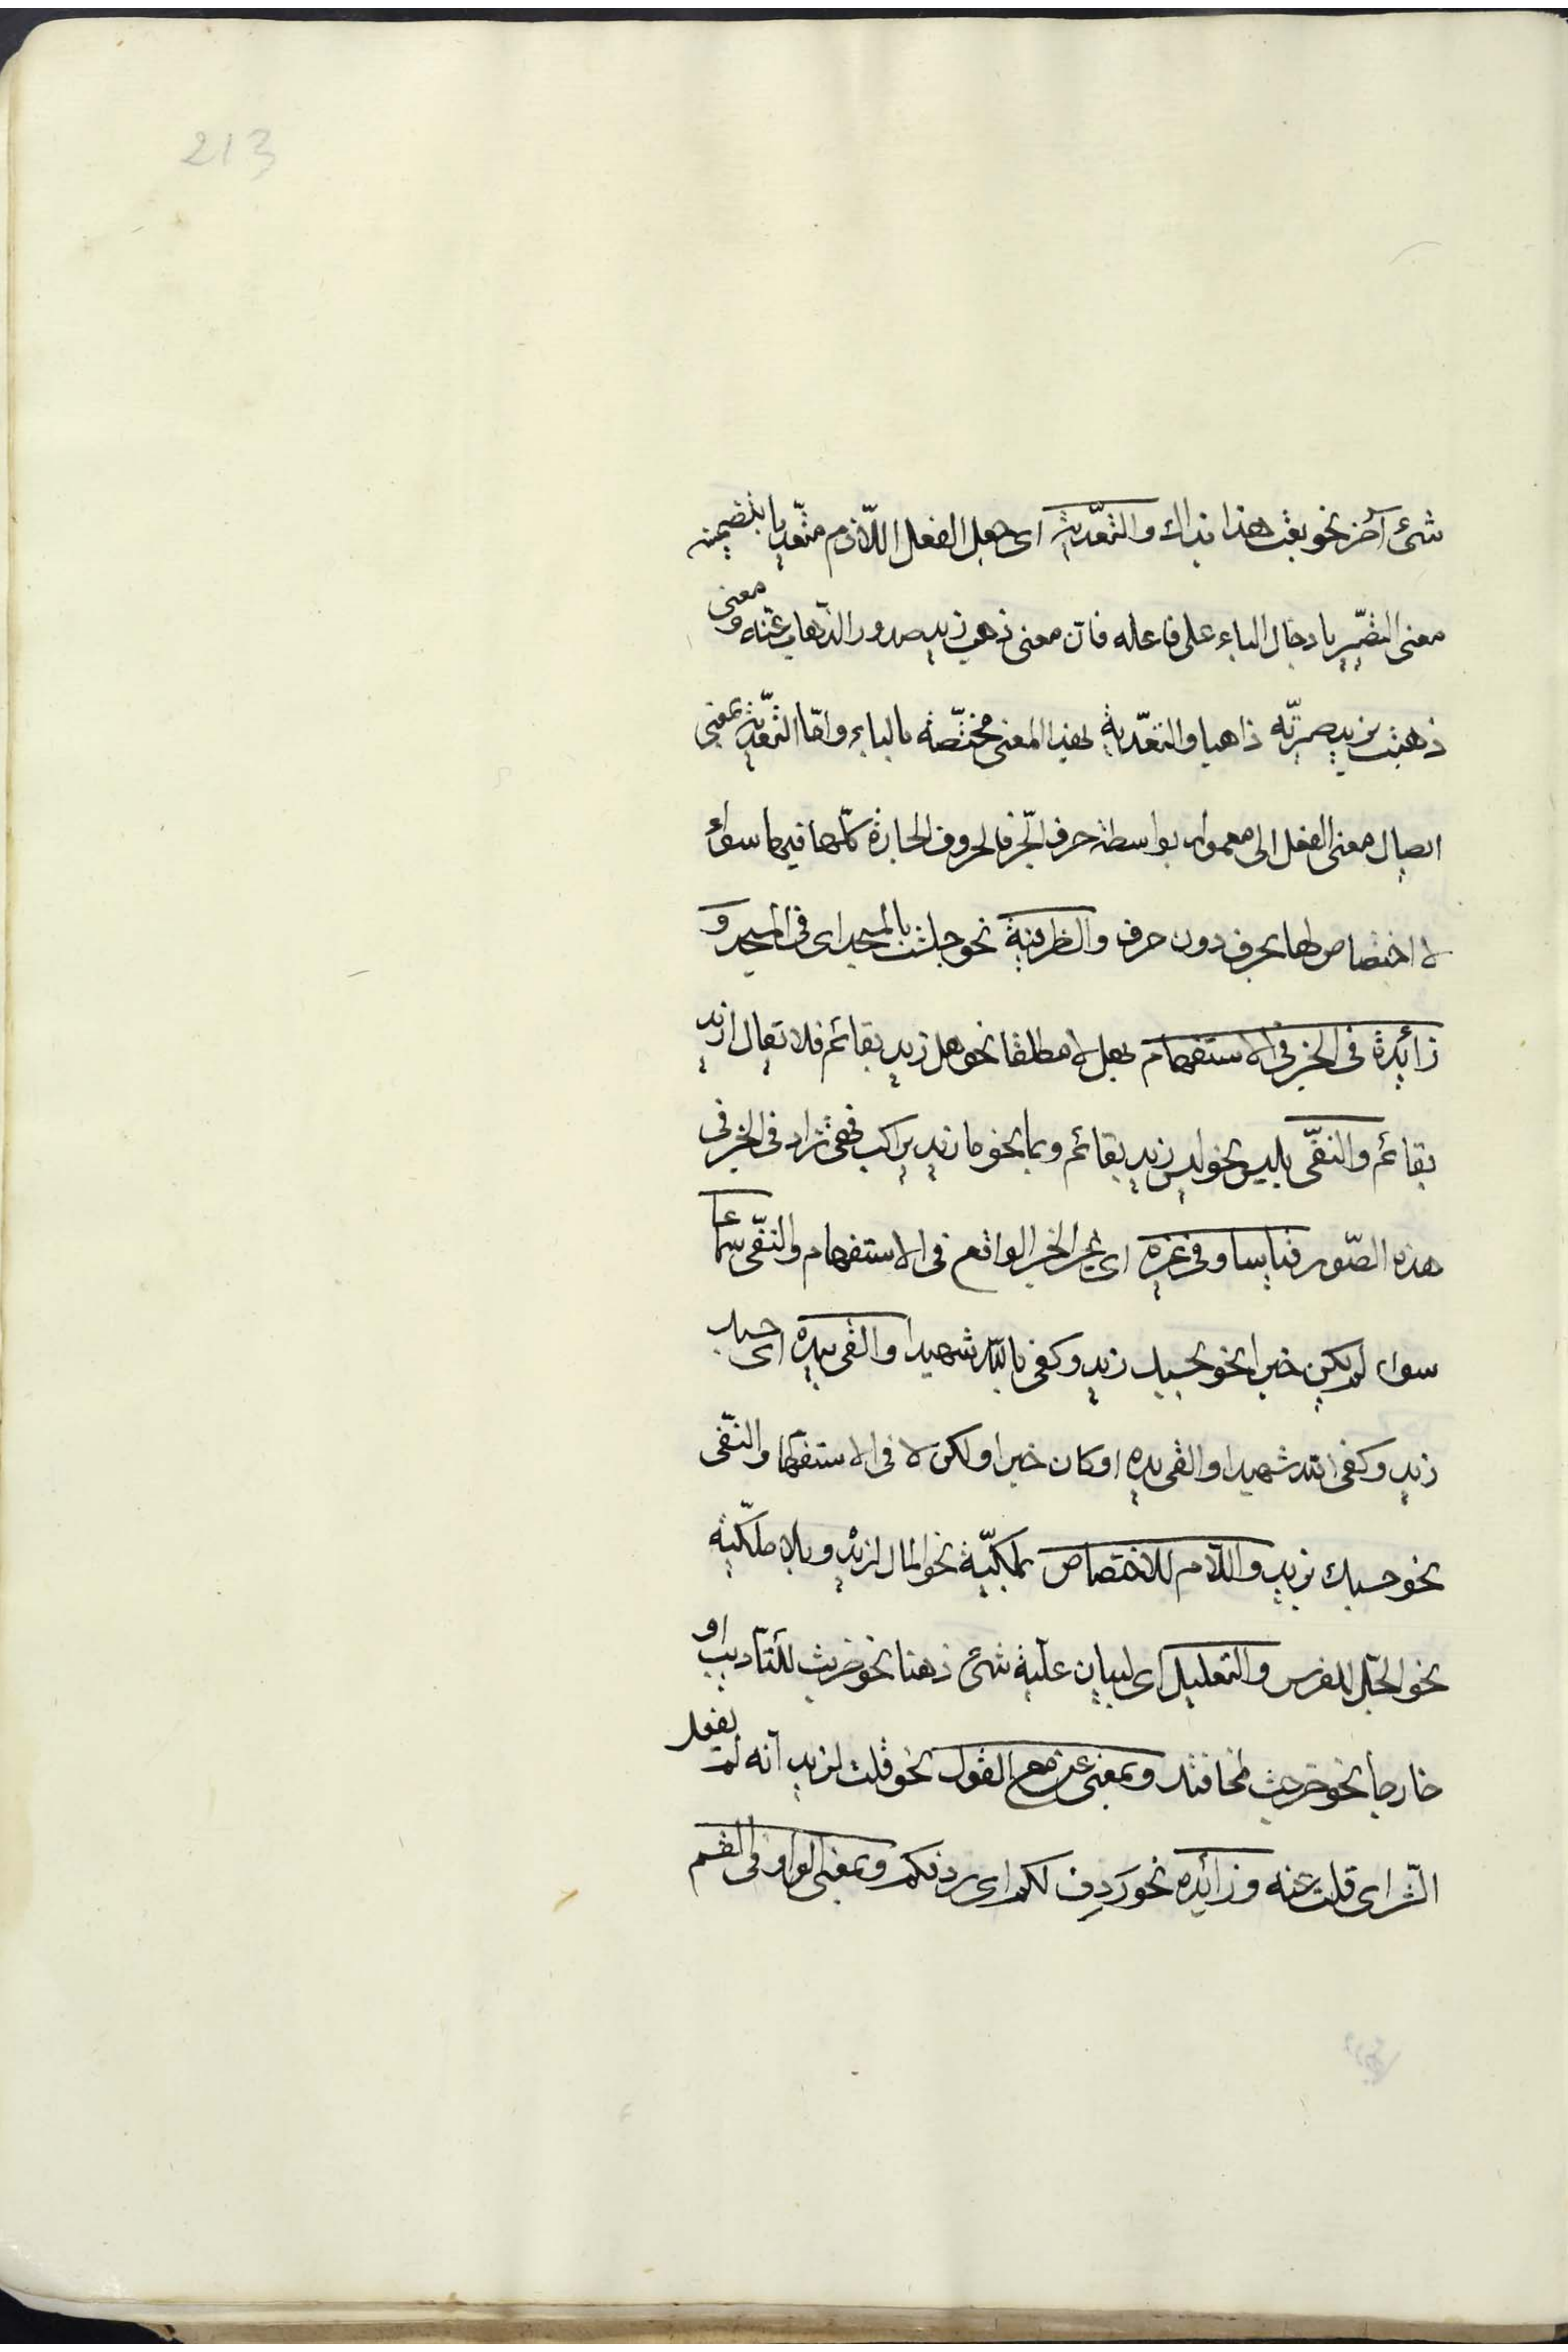 213
شئ آخر نحو بعت هذا بذاك والتعدّية اى جعل الفعل اللّازم متعّديا بتضمينه
معنى التصّيير بادخال الباء على فاعله فان معنى ذهب زيد صدور الذّهاب عنه ومعنى
ذهبت بزيد صيرتّه ذاهبا والتعدّية بهذا المعنى مختصّة بالباء وامّا التعّدية بمعنى
ايصال معنى الفعل الى معموله بواسطة حرف الجّر فالحروف الجارة كلّها فيها سواء
لا اختصاص لها بحرف دون حرف والظرفية نحو جلست بالمسجد اى فى المسجد و
زائدة فى الخبر فى الاستفهام بهل لا مطلقا نحو هل زيد بقائم فلا تقال ازيد
بقائم والنفّى بليس نحو ليس زيد بقائم وبما نحو ما زيد براكب فهى تزاد فى الخبر فى
هذه الصّور قياسا وفى غيره اى غير الخبر الواقع فى الاستفهام والنفّى سماعا
سواء لم يكن خبرا نحو بحسبك زيد وكفى بالله شهيدا والقى بيده اى حسبك
زيد وكفى الله شهيدا والقى يده او كان خبرا ولكن لا فى الاستفهام والنفّى
نحو حسبك بزيد واللّام للاختصاص بملكيّة نحو المال لزيد وبلا ملكيّة
نحو الجّل للفرس والتعليل اى لبيان علّية شئ ذهنا نحو ضربت للتّأديب او
خارجا نحو خرجت لمخافتك وبمعنى عن مع القول نحو قلت لزيد انه لم يفعل
الشّر اى قلت عنه وزائدة نحو رَدِف لكم اى ردفكم وبمعنى الواو فى القسم